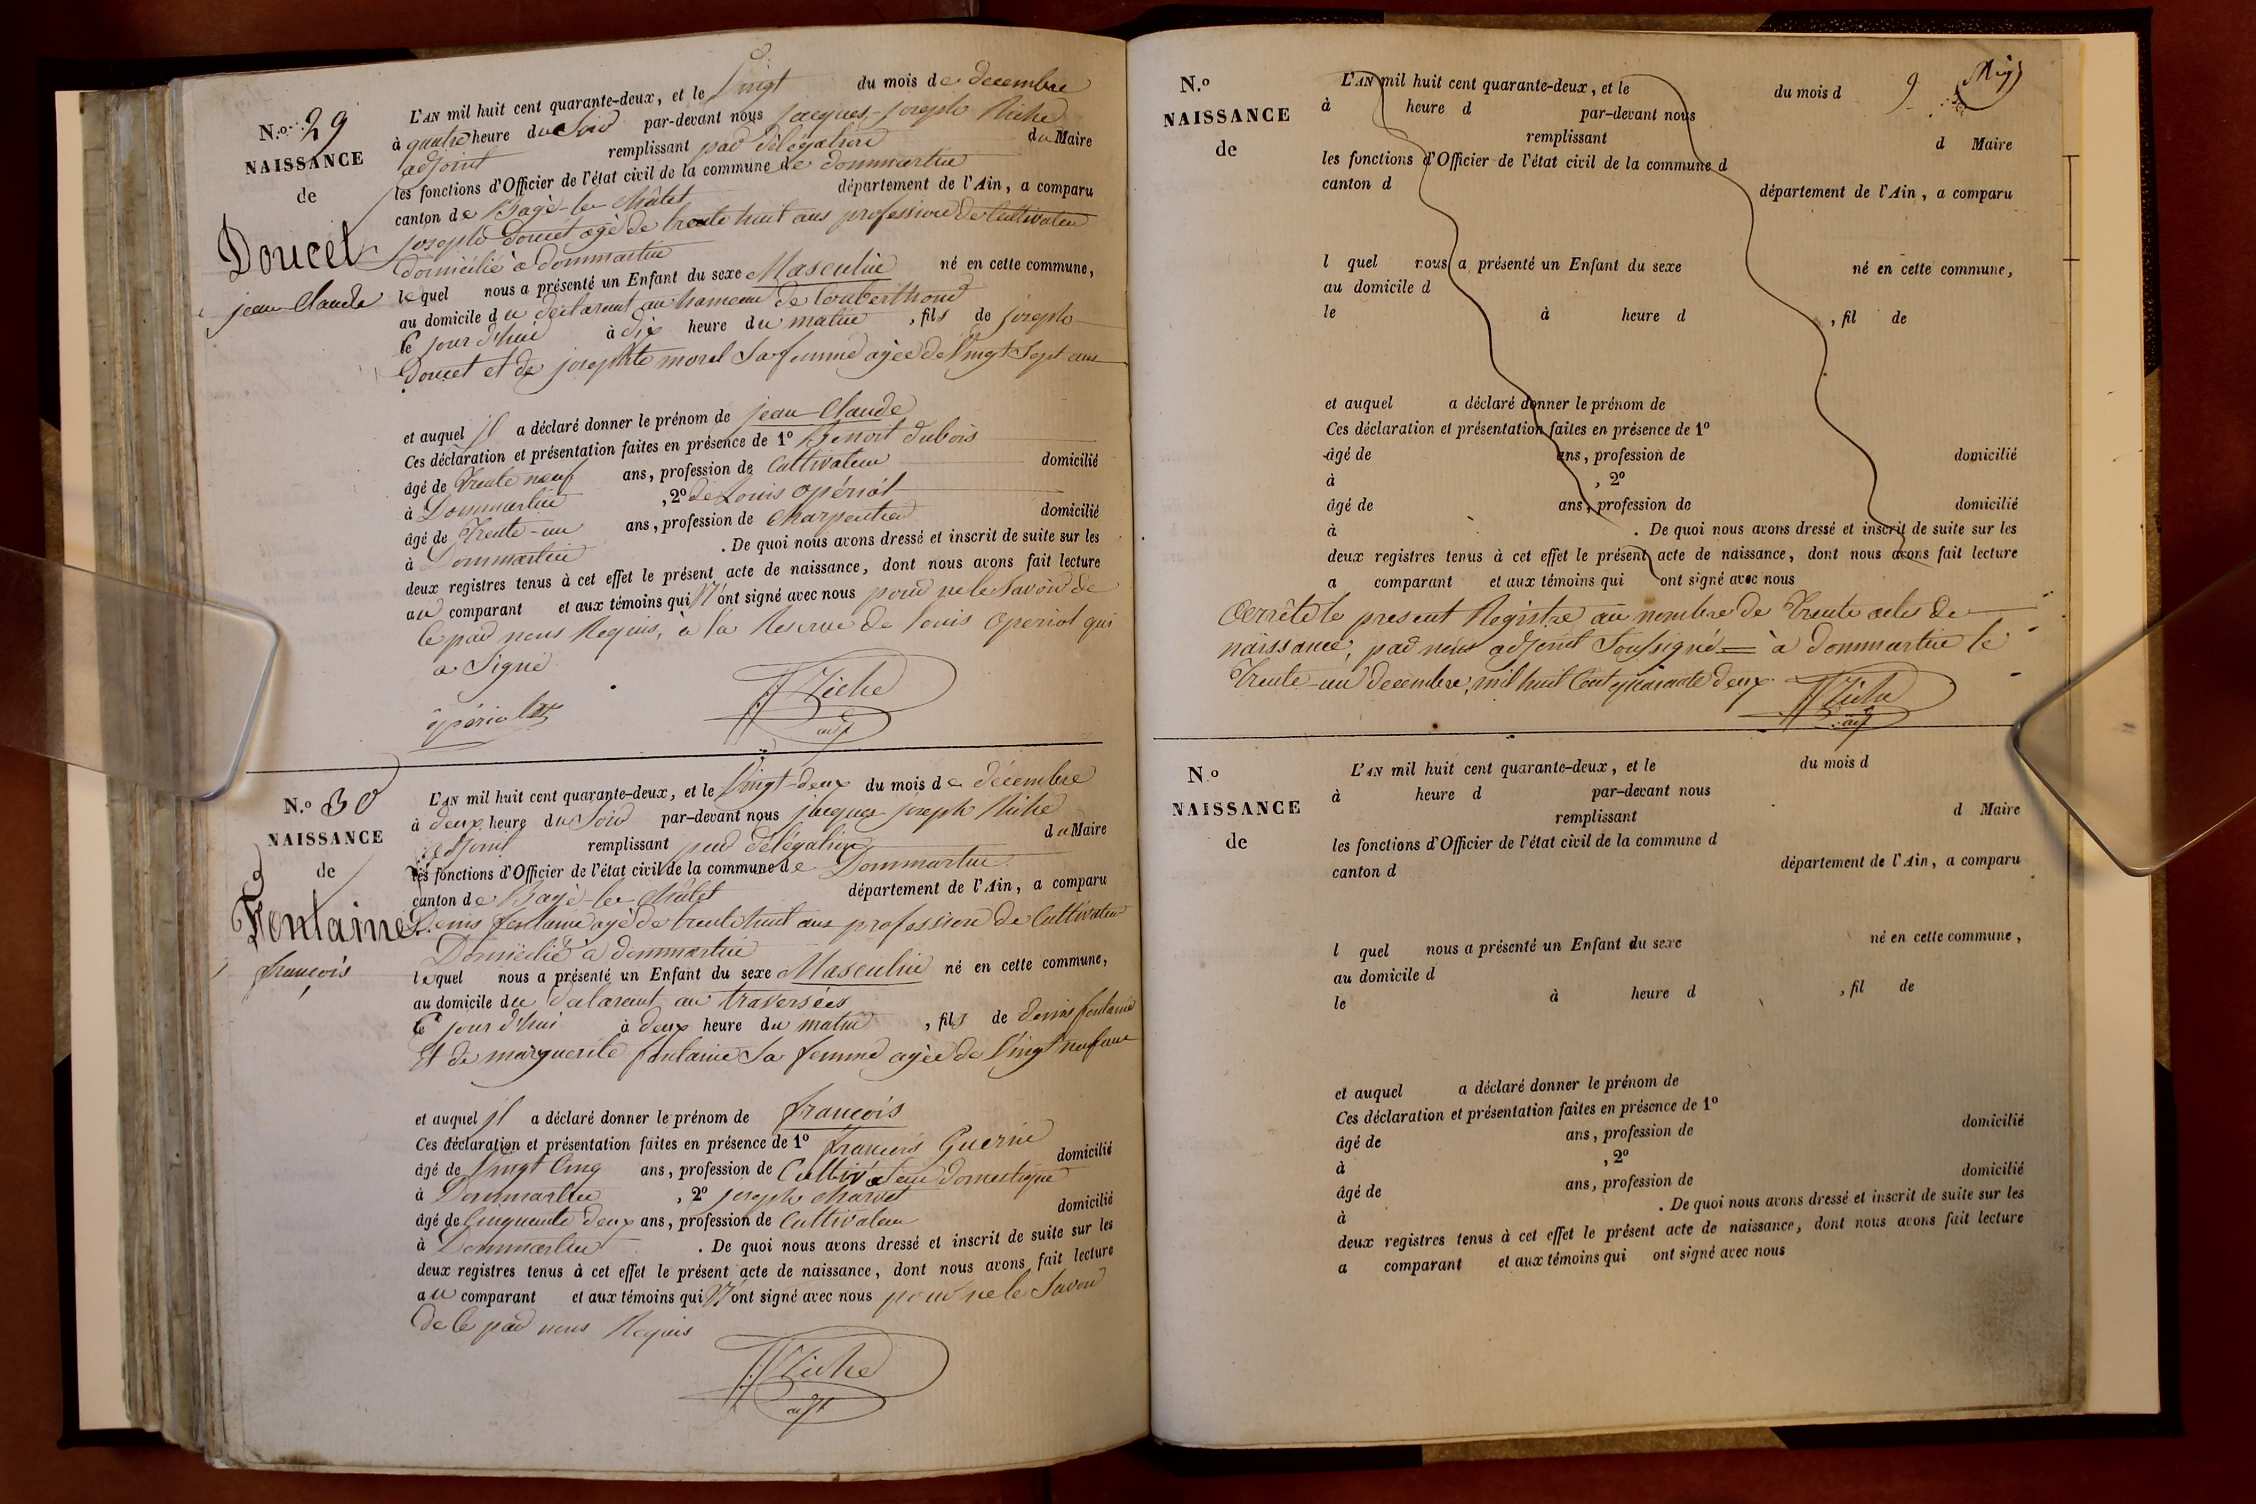 N.º 29
NAISSANCE
de
Doucet
jean Claude
L'AN mil huit cent quarante-deux, et le Vingt du mois de decembre
à quatre heure du Soir par-devant nous jacques-joseph Riche
adjoint remplissant par délégation du Maire
les fonctions d'Officier de l'état civil de la commune de dommartin
canton de Bagé-le-Châtel département de l'Ain, a comparu
joseph Doucet agé de trente huit ans profession de Cultivateur
domicilié à dommartin
lequel nous a présenté un Enfant du sexe Masculin né en cette commune,
au domicile du déclarant au hameau de
le jour d'hui à dix heure du matin, fils de joseph
Doucet et de josephte morel Sa femme agée de Vingt Sept ans
et auquel il a déclaré donner le prénom de jean Claude
Ces déclaration et présentation faites en présence de 1º Benoit dubois
âgé de Trente neuf ans, profession de Cultivateur domicilié
à Dommartin, 2º de Louis opériol
âgé de Trente-un ans, profession de Charpentier domicilié
à Dommartin. De quoi nous avons dressé et inscrit de suite sur les
deux registres tenus à cet effet le présent acte de naissance, dont nous avons fait lecture
au comparant et aux témoins qui N'ont signé avec nous pour ne le Savoir de
Ce par nous Requis, à la Reserve de Louis Operiol qui
a Signé
opériol
Riche
adj
N.º 30
NAISSANCE
de
Fontaine
françois
L'AN mil huit cent quarante-deux, et le Vingt-deux du mois de décembre
à deux heure du Soir par-devant nous jacques joseph Riche
adjoint remplissant par délégation du Maire
les fonctions d'Officier de l'état civil de la commune de Dommartin
canton de Bagé-le-Châtel département de l'Ain, a comparu
Denis fontaine agé de trente huit ans profession de Cultivateur
Domicilié à dommartin
lequel nous a présenté un Enfant du sexe Masculin né en cette commune,
au domicile du déclarant au traversées
le jour d'hui à deux heure du matin, fils de denis fontaine
Et de marguerite fontaine Sa femme agée de Vingt neuf ans
et auquel il a déclaré donner le prénom de françois
Ces déclaration et présentation faites en présence de 1º françois Guerin
âgé de Vingt Cinq ans, profession de Cultivateur domestique domicilié
à Dommartin, 2º joseph charvet
âgé de Cinquante deux ans, profession de Cultivateur domicilié
à Dommartin. De quoi nous avons dressé et inscrit de suite sur les
deux registres tenus à cet effet le présent acte de naissance, dont nous avons fait lecture
au comparant et aux témoins qui N'ont signé avec nous pour ne le Savoir
de Ce par nous Requis
Riche
adjt
N.º
NAISSANCE
de
L'AN mil huit cent quarante-deux, et le du mois d
à heure d par-devant nous
remplissant d Maire
les fonctions d'Officier de l'état civil de la commune d
canton d département de l'Ain, a comparu
l quel nous a présenté un Enfant du sexe né en cette commune,
au domicile d
le à heure d , fil de
et auquel a déclaré donner le prénom de
Ces déclaration et présentation faites en présence de 1º
âgé de ans, profession de domicilié
à , 2º
âgé de ans, profession de domicilié
à . De quoi nous avons dressé et inscrit de suite sur les
deux registres tenus à cet effet le présent acte de naissance, dont nous avons fait lecture
a comparant et aux témoins qui ont signé avec nous
Arrêté le present Registre au nombre de Trente actes de
naissance, par nous adjoint Soussigné à dommartin le
Trente-un decembre, mil huit Cent quarante deux
Riche
adj
N.º
NAISSANCE
de
L'AN mil huit cent quarante-deux, et le du mois d
à heure d par-devant nous
remplissant d Maire
les fonctions d'Officier de l'état civil de la commune d
canton d département de l'Ain, a comparu
l quel nous a présenté un Enfant du sexe né en cette commune,
au domicile d
le à heure d , fil de
et auquel a déclaré donner le prénom de
Ces déclaration et présentation faites en présence de 1º
âgé de ans, profession de domicilié
à , 2º
âgé de ans, profession de domicilié
à . De quoi nous avons dressé et inscrit de suite sur les
deux registres tenus à cet effet le présent acte de naissance, dont nous avons fait lecture
a comparant et aux témoins qui ont signé avec nous